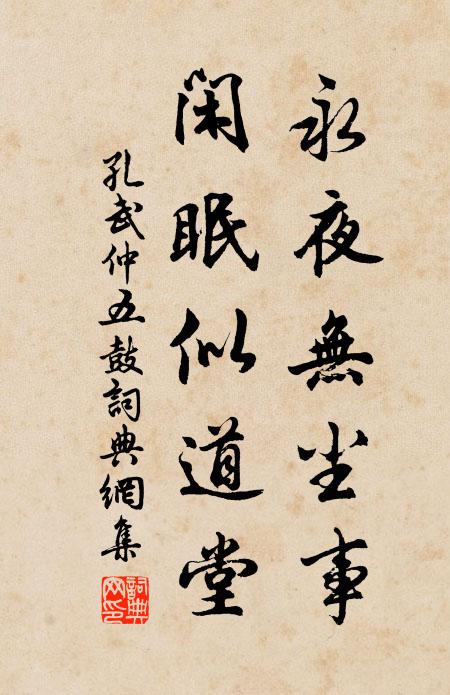 永夜無尘事
閑眠似道堂
孔武仲五鼓詞典網集
詞典
网印